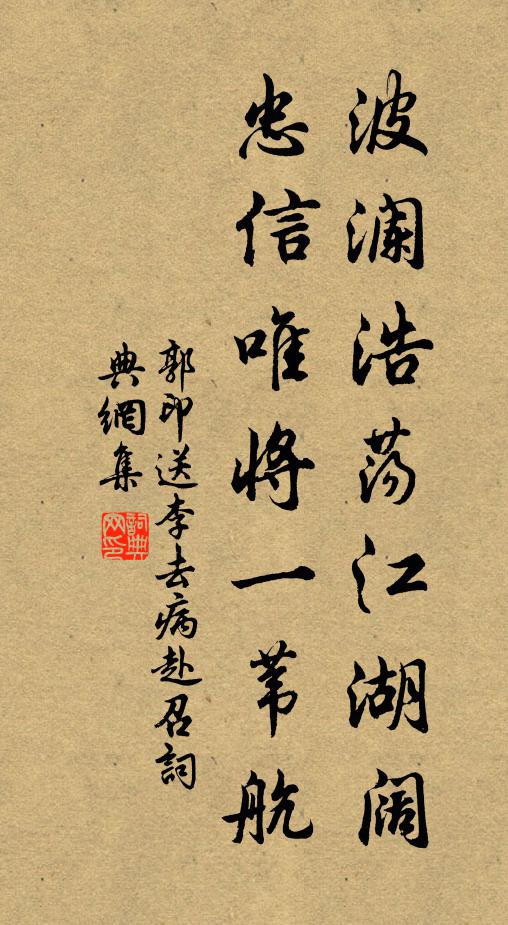 波澜浩荡江湖阔
忠信唯将一苇航
郭印送李去病赴召詞
典網集
詞典网印